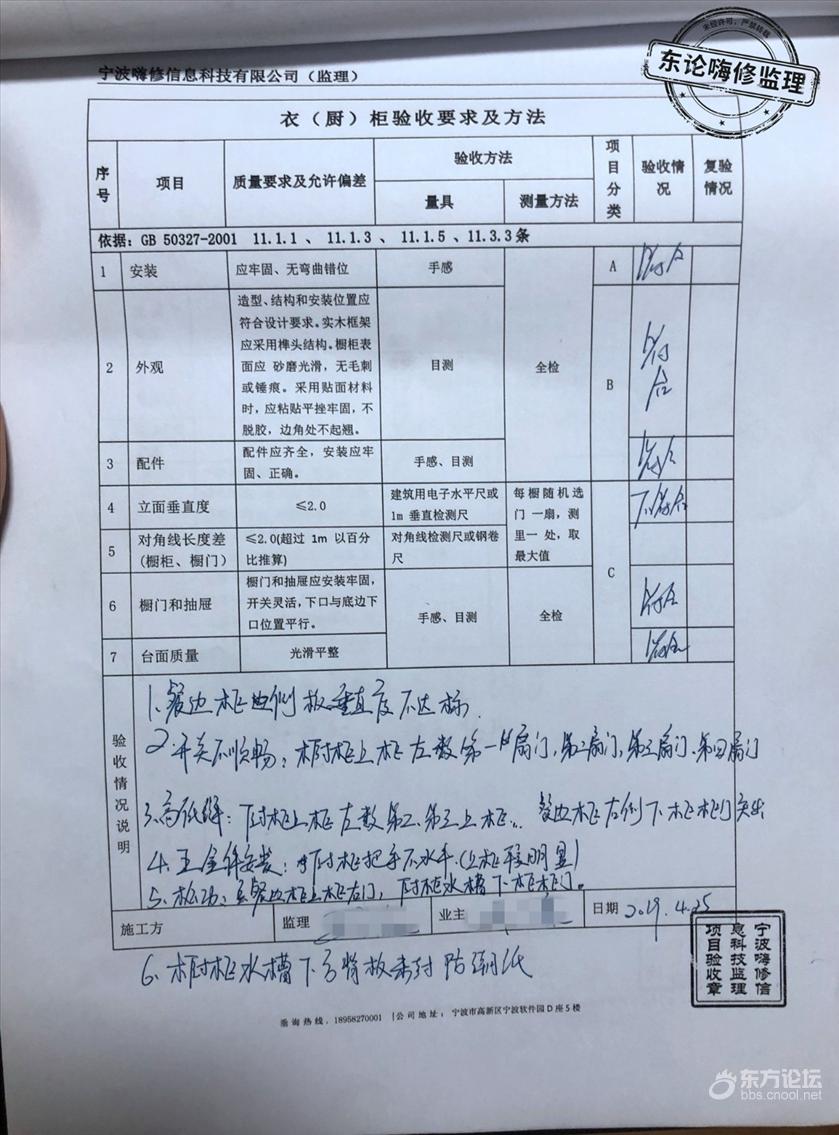 未经许可，严禁转载
东论嗨修监理
宁波嗨修信息科技有限公司（监理）
衣（厨）柜验收要求及方法
序号 项目 质量要求及允许偏差 验收方法 项目分类 验收情况 复验情况
量具 测量方法
依据: GB 50327-2001 11.1.1 、 11.1.3 、 11.1.5 、11.3.3条
1 安装 应牢固、无弯曲错位 手感 A 符合
造型、结构和安装位置应
符合设计要求。实木框架
应采用榫头结构。橱柜表
面应 砂磨光滑，无毛刺
或锤痕。采用贴面材料
时，应粘贴平挫牢固，不
脱胶，边角处不起翘。
2 外观 目测 全检 B 符合
3 配件 配件应齐全，安装应牢固、正确。 手感、目测 符合
4 立面垂直度 ≤2.0 建筑用电子水平尺或1m 垂直检测尺 每橱随机选门 一扇，测里一 处，取最大值 C 不符合
5 对角线长度差(橱柜、橱门) ≤2.0(超过 1m 以百分比推算) 对角线检测尺或钢卷尺
6 橱门和抽屉 橱门和抽屉应安装牢固，开关灵活，下口与底边下口位置平行。 手感、目测 全检 符合
7 台面质量 光滑平整 符合
验收情况说明
1.餐边柜 侧板垂直度不达标.
2 开关不顺畅：橱柜上柜左数第一扇门，第二扇门，第三扇门、第四扇门
3.高低缝：厨柜上柜左数第二、第三上柜.. 餐边柜右侧下柜柜门突出
4.五金件安装：厨柜把手不水平.(上柜 明显)
5. 松动： 餐边柜上柜右门，厨柜水槽下柜柜门。
施工方 监理 业主 日期 2019.4.25
6.橱柜水槽下方背板未封防潮纸
宁波嗨修信息科技监理项目验收章
垂询热线：18958270001 |公司地址：宁波市高新区宁波软件园D座5楼
东方论坛
bbs.cnool.net